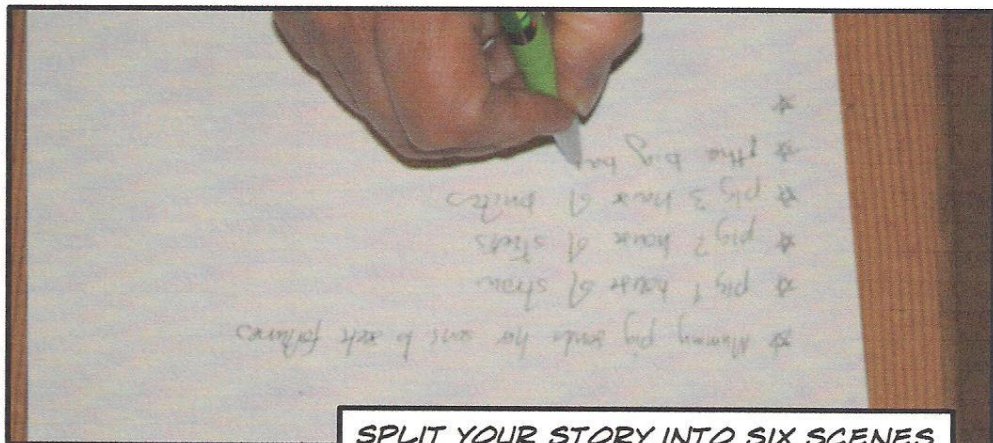 ☆ Mummy pig sends her sons to seek fortunes
☆ pig 1 house of straw
☆ pig 2 house of sticks
☆ pig 3 house of bricks
☆ the big ba
☆
SPLIT YOUR STORY INTO SIX SCENES